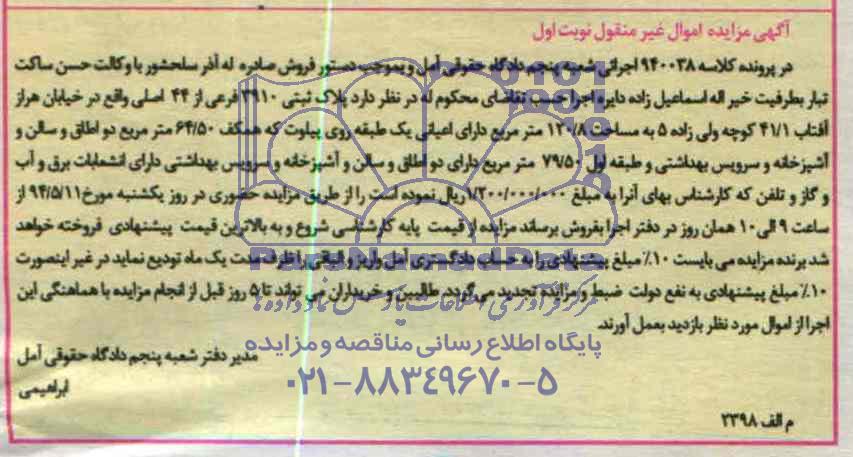 آگهی مزایده اموال غیر منقول نوبت اول
در پرونده کلاسه ۹۴۰۰۳۸ اجرائی شعبه پنجم دادگاه حقوقی آمل و بموجب دستور فروش صادره له آذر سلحشور با وکالت حسن ساکت
تبار بطرفیت خیر اله اسماعیل زاده دایره اجرا حسب تقاضای محکوم له در نظر دارد پلاک ثبتی ۳۹۱۰ فرعی از ۴۴ اصلی واقع در خیابان هراز
آفتاب ۴۱/۱ کوچه ولی زاده ۵ به مساحت ۱۲۰/۸ متر مربع دارای اعیانی یک طبقه روی پیلوت که همکف ۶۴/۵۰ متر مربع دو اطاق و سالن و
آشپزخانه و سرویس بهداشتی و طبقه اول ۷۹/۵۰ متر مربع دارای دو اطاق و سالن و آشپزخانه و سرویس بهداشتی دارای انشعابات برق و آب
و گاز و تلفن که کارشناس بهای آنرا به مبلغ ۱/۲۰۰/۰۰۰/۰۰۰ ریال نموده است را از طریق مزایده حضوری در روز یکشنبه مورخ ۹۴/۵/۱۱ از
ساعت ۹ الی ۱۰ همان روز در دفتر اجرا بفروش برساند مزایده از قیمت پایه کارشناسی شروع و به بالاترین قیمت پیشنهادی فروخته خواهد
شد برنده مزایده می بایست ۱۰٪ مبلغ پیشنهادی را به حساب دادگستری آمل واریز و الباقی را ظرف مدت یک ماه تودیع نماید در غیر اینصورت
۱۰٪ مبلغ پیشنهادی به نفع دولت ضبط و مزایده تجدید می گردد. طالبین و خریداران می تواند تا ۵ روز قبل از انجام مزایده با هماهنگی این
اجرا از اموال مورد نظر بازدید بعمل آورند.
مدیر دفتر شعبه پنجم دادگاه حقوقی آمل
ابراهیمی
م الف ۲۳۹۸
ParsNamadData
مرکز فرآوری اطلاعات پارس نماد داده ها
پایگاه اطلاع رسانی مناقصه و مزایده
۰۲۱-۸۸۳۴۹۶۷۰-۵